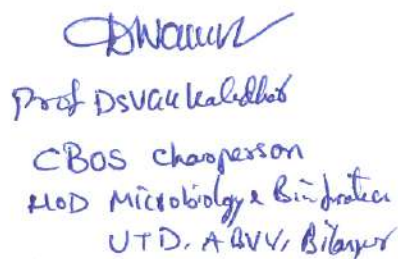 Prof DSVGK Kaladhar
CBOS chairperson
HOD Microbiology & Bioinformatics
UTD, ABVV, Bilaspur